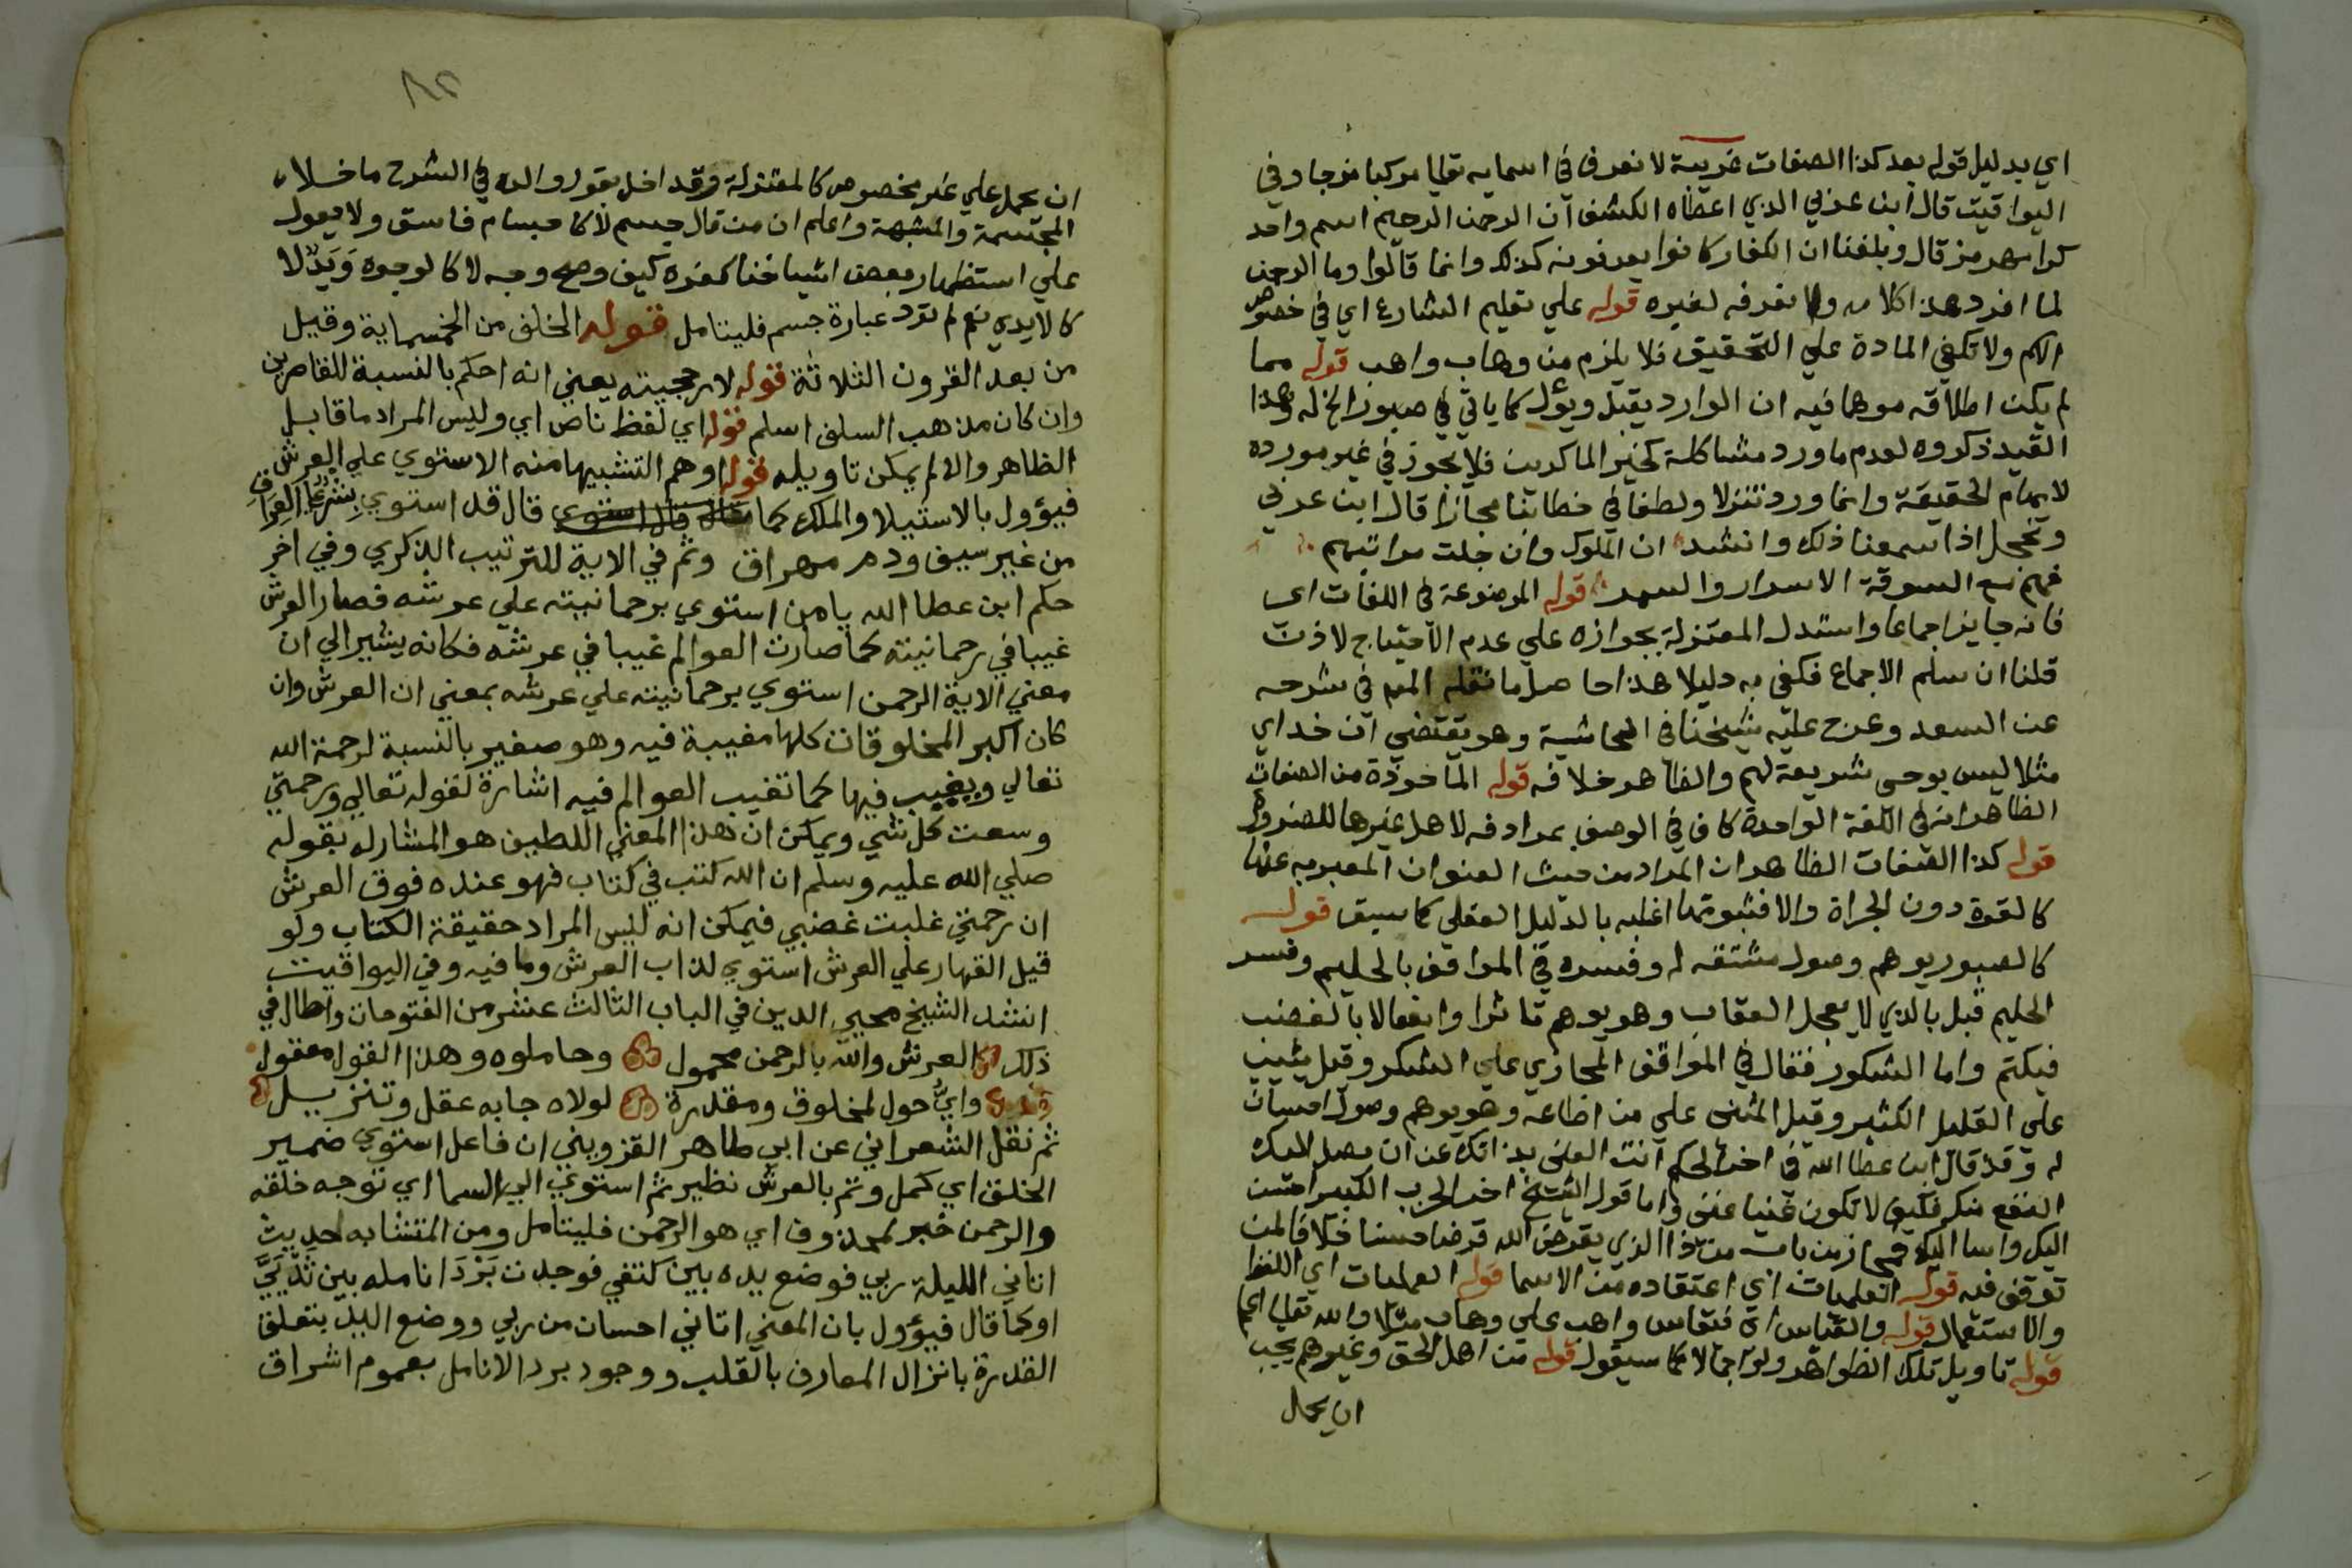 اي بدليل قوله بعد كذا الصفات غريبة لا نعرف في اسمايه تعالى مركبا مزجيا وفي
اليواقيت قال ابن عربي الذي اعطاه الكشف ان الرحمن الرحيم اسم واحد
كرامهرمز قال وبلغنا ان الكفار كانوا يعرفونه كذلك وانما قالوا وما الرحمن
لما افرد هذا كلامه ولا نعرفه لغيره قوله علي تعليم الشارع اي في خصوص
الاسم ولا تكفي المادة علي التحقيق فلا يلزم من وهاب واهب قوله مما
لم يكن اطلاقه موهما فيه ان الوارد يقبل ويؤل كما ياتي في صبور الخ له وهذا
القيد ذكروه لعدم ما ورد مشاكلة كخير الماكرين فلا يجوز في غير مورده
لايهام الحقيقة وانما ورد تنزلا ولطفا في خطابنا مجازا قال ابن عربي
ونخجل اذا سمعنا ذلك وانشد ان الملوك وان جلت مراتبهم
لهم مع السوقة الاسرار والسمر قوله الموضوعة في اللغات اي
فانه جايز اجماعا واستدل المعتزلة بجوازه علي عدم الاحتياج لاذن
قلنا ان سلم الاجماع فكفي به دليلا هذا حاصل ما نقله المص في شرحه
عن السعد وعرج عليه شيخنا في الحاشية وهو يقتضي ان خداي
مثلا ليس بوحي شريعة لهم والظاهر خلافه قوله الماخوذة من الصفات
الظاهر انه في اللغة الواحدة كاف في الوصف بمرادفه لاهل غيرها للضرورة
قوله كذا الصفات الظاهر ان المراد من حيث العنوان المعبر به عنها
كالقوة دون الجراة والا فثبوتها اغلبه بالدليل العقلي كما سبق قوله
كالصبور يوهم وصول مشقة له وفسره في المواقف بالحليم وفسر
الحليم قبل بالذي لا يعجل العقاب وهو يوهم تاثرا وانفعالا بالغضب
فيكتم واما الشكور فقال في المواقف المجازي علي الشكر وقيل يثيب
علي القليل الكثير وقيل المثني علي من اطاعه وهو يوهم وصول احسان
له وقد قال ابن عطا الله في اخر الحكم انت الغني بذاتك عن ان يصل اليك
النفع منك فكيف لا تكون غنيا عني واما قول الشيخ اخر الحزب الكبير احسن
اليك واسا اليك فمجاز من باب من ذا الذي يقرض الله قرضا حسنا خلافا لمن
توقف فيه قوله العلميات اي اعتقاده من الاسما قوله العمليات اي اللفظ
والاستعمال قوله والقياس اي فنقاس واهب علي وهاب مثلا والله تعالى اعلم
قوله تاويل تلك الظواهر ولو اجمالا كما سيقول قوله من اهل الحق وغيرهم يجب
ان يحمل
٨٢
ان يحمل علي غير مخصوص كالمعتزلة وقد افل بقور والده في الشرح ما خلا
المجسمة والمشبهة واعلم ان من قال جسم لا كاجسام فاسق ولا يعول
علي استظهار بعض اشياخنا كفره كيف وصح وجه لا كالوجوه وَيَدٌ لا
كالايدي نعم لم ترد عبارة جسم فليتامل قوله الخلف من الخمسماية وقيل
من بعد القرون الثلاثة قوله لارجحيته يعني انه احكم بالنسبة للقاصرين
وان كان مذهب السلف اسلم قوله اي لفظ ناص اي وليس المراد ما قابل
الظاهر والا لم يمكن تاويله قوله اوهم التشبيها منه الاستوي علي العرش
فيؤول بالاستيلا والملك كما قال قد استوي بِشْرٌ علي العراق
من غير سيف ودم مهراق وثم في الاية للترتيب الذكري وفي اخر
حكم ابن عطا الله يا من استوي برحمانيته علي عرشه فصار العرش
غيبا في رحمانيته كما صارت العوالم غيبا في عرشه فكانه يشير الي ان
معني الاية الرحمن استوي برحمانيته علي عرشه بمعني ان العرش وان
كان اكبر المخلوقات كلها مغيبة فيه وهو صغير بالنسبة لرحمة الله
تعالي ويغيب فيها كما تغيب العوالم فيه اشارة لقوله تعالي ورحمتي
وسعت كل شي ويمكن ان هذا المعني اللطيف هو المشار له بقوله
صلي الله عليه وسلم ان الله كتب في كتاب فهو عنده فوق العرش
ان رحمتي غلبت غضبي فيمكن انه ليس المراد حقيقة الكتاب ولو
قيل القهار علي العرش استوي لذاب العرش وما فيه وفي اليواقيت
انشد الشيخ محيي الدين في الباب الثالث عشر من الفتوحات واطال في
ذلك العرش والله بالرحمن محمول وحاملوه وهذا القول معقول
وايُّ حول لمخلوق ومقدرة لولاه جا به عقل وتنزيل
ثم نقل الشعراني عن ابي طاهر القزويني ان فاعل استوي ضمير
الخلق اي كمل وتم بالعرش نظير ثم استوي الي السما اي توجه خلقه
والرحمن خبر لمحذوف اي هو الرحمن فليتامل ومن المتشابه لحديث
اتاني الليلة ربي فوضع يده بين كتفي فوجدت بَرْدَ انامله بين ثَدْيَيَّ
او كما قال فيؤول بان المعني اتاني احسان من ربي ووضع اليد بتعلق
القدرة بانزال المعارف بالقلب ووجود برد الانامل بعموم اشراق